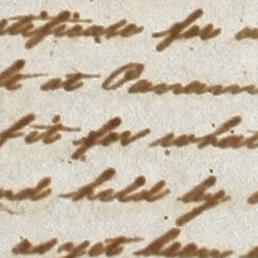 tificate for
lt at Panam
fit for what
nd held by
as yet been